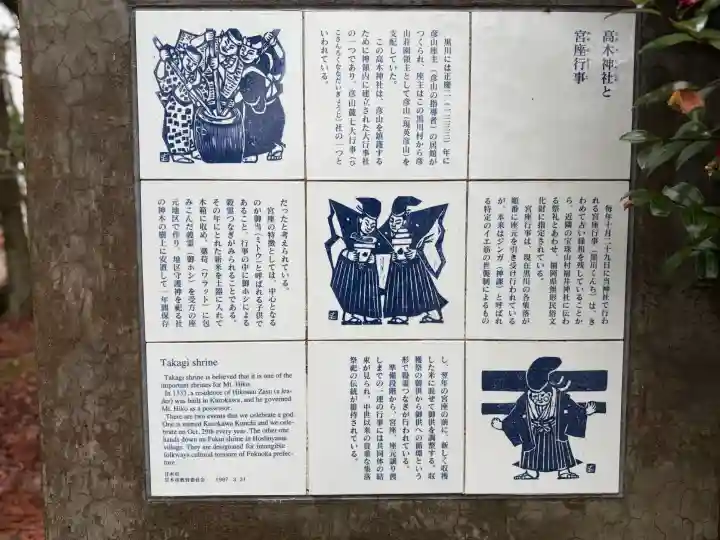 高木神社と
宮座行事
黒川には正慶二(一三三三)年に
彦山座主(彦山の指導者)の居館が
つくられ、座主はこの黒川村から彦
山荘園領主として彦山(現英彦山)を
支配していた。
この高木神社は、彦山を鎮護する
ために神領内に建立された大行事社
の一つであり、彦山麓七大行事(ひ
こさんろくななだいぎょうじ)社の一つと
いわれている。
毎年十月二十九日に当神社で行わ
れる宮座行事(黒川くんち)は、き
わめて古い様相を残していることか
ら、近隣の宝珠山村福井神社に伝わ
る祭礼とあわせ、福岡県無形民俗文
化財に指定されている。
宮座行事は、現在黒川の各集落が
順番に座元を引き受け行われている
が、本来はジンガ(神課)と呼ばれ
る特定のイエ筋の世襲制によるもの
だったと考えられている。
宮座の特徴としては、中心となる
のが御当(ミトウ)と呼ばれる子供で
あること、行事の中に御ホシによる
穀霊つなぎがみられることである。
その年にとれた新米を土器に入れて
木箱に収め、藁苞(ワラット)に包
みこんだ穀霊(御ホシ)を受方の座
元地区で作り、地区守護神を祀る社
の神木の樹上に安置して一年間保存
し、翌年の宮座の前に、新しく収穫
した米に混ぜて御供を調整する。収
穫祭の御供から御供への循環という
形で穀霊つなぎが行われている。
準備段階から、宮座、座元譲り渡
しまでの一連の行事には共同体の結
束が見られ、中世以来の貴重な集落
祭祀の伝統が維持されている。
Takagi shrine
Takagi shrine is believed that it is one of the
important shrines for Mt. Hiko.
In 1333, a residence of Hikosan Zasu (a lea-
der) was built in Kurokawa, and he governed
Mt. Hiko as a possessor.
There are two events that we celebrate a god.
One is named Kurokawa Kunchi and we cele-
brate on Oct. 29th every year. The other one
hands down on Fukui shrine in Hoshuyama
village. They are designated for intangible
folkways cultural treasure of Fukuoka prefec-
ture.
甘木市
甘木市教育委員会 1997. 3. 31